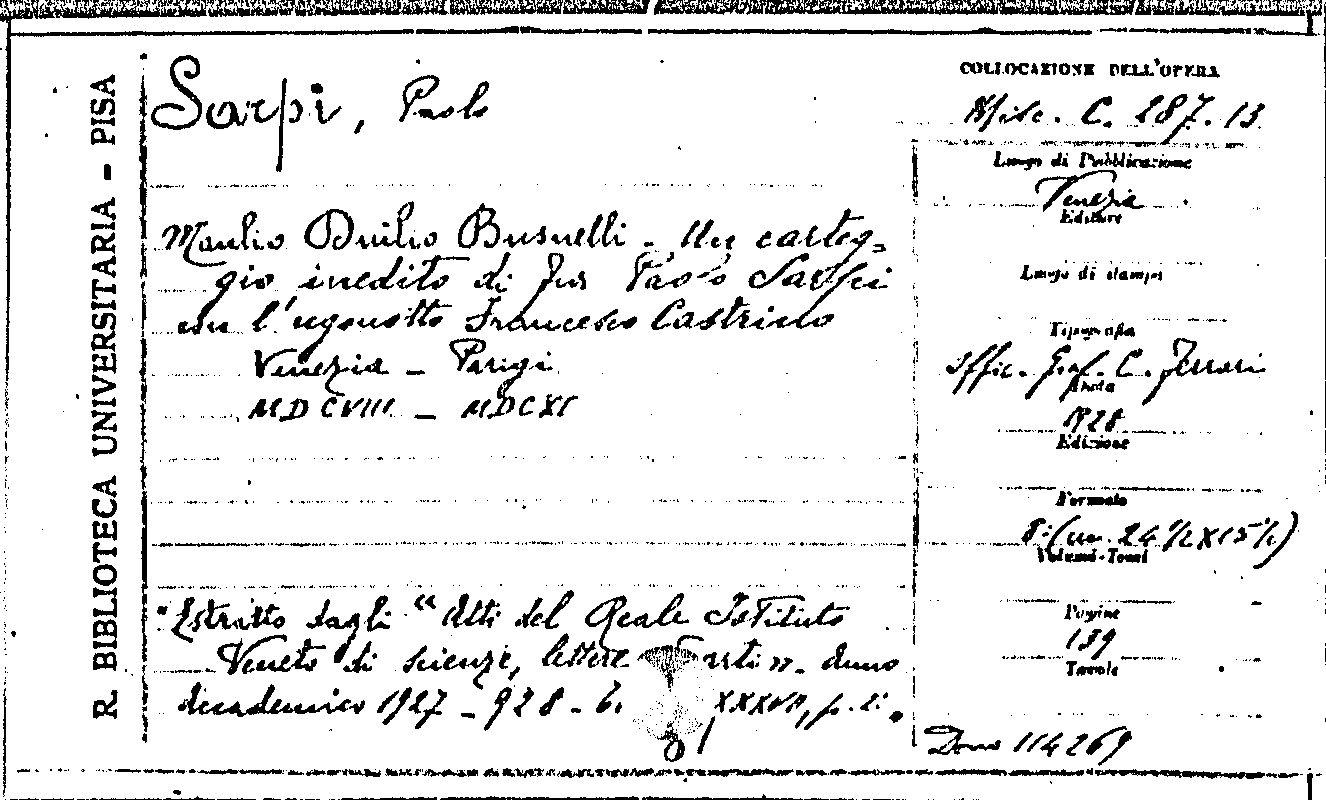 R. BIBLIOTECA UNIVERSITARIA - PISA
Sarpi, Paolo
Manlio Duilio Busnelli - Un carteg-
gio inedito di Fra Paolo Sarpi
con l'ugonotto Francesco Castrino
Venezia - Parigi
MDCVIII - MDCXI
"Estratto dagli "Atti del Reale Istituto
Veneto di scienze, lettere arti". Anno
accademico 1927-928 - t. p. 2ª.
COLLOCAZIONE DELL'OPERA
Misc. C. 287.13
Luogo di Pubblicazione
Venezia
Editore
Luogo di stampa
Tipografia
Offic. Graf. C. Ferrari
Data
1928
Edizione
Formato
8° (cm. 24 1/2 X 15 1/2)
Volumi-Tomi
Pagine
139
Tavole
Dono 114269